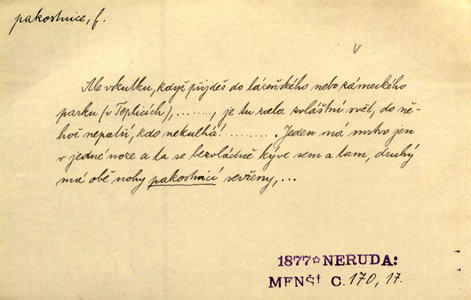 pakostnice, f.
v
Ale vskutku, když přijdeš do lázeňského nebo zámeckého
parku (v Teplicích), ........, je tu zcela zvláštní svět, do ně-
hož nepatří, kdo nekulhá! ......... Jeden má mrtvo jen
v jedné noze a ta se bezvládně kýve sem a tam, druhý
má obě nohy pakostnicí sevřeny, ...
1877 ☆ NERUDA:
MENŠÍ C. 170, 17.